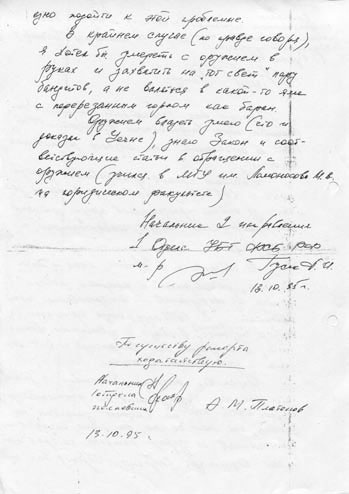 одно подойти к этой проблеме.
В крайнем случае (по правде говоря),
я хотел бы умереть с оружием в
руках и захватить на "тот свет" пару
бандитов, а не валяться в какой-то яме
с перерезанным горлом как баран.
Оружием владею умело (что и
доказал в Чечне), знаю Закон и соот-
ветствующие статьи в обращении с
оружием (учился в МГУ им. Ломоносова М.В.
на юридическом факультете)
Начальник 2 направления
1 Отдела УБТ ФСБ РФ
м-р
13.10.95г.
По существу рапорта
ходатайствую.
Начальник
1 отдела
полковник А. М. Платонов
13.10.95г.